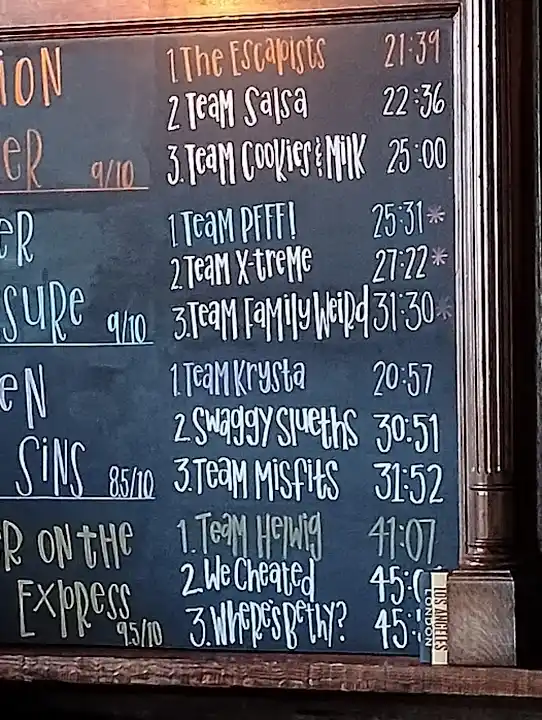 ION
ER 9/10
1 The Escapists 21:39
2 Team Salsa 22:36
3. Team Cookies & Milk 25:00
ER
SURE 9/10
1 Team PFFF! 25:31*
2 Team X-treme 27:22*
3. Team Family Weird 31:30*
EN
SINS 8.5/10
1. Team Krysta 20:57
2. Swaggy Slueths 30:51
3. Team Misfits 31:52
R ON THE
EXPRESS
9.5/10
1. Team Helwig 41:07
2. We Cheated 45:
3. Where's Bethy? 45:
LOS ANGELES
LONDON